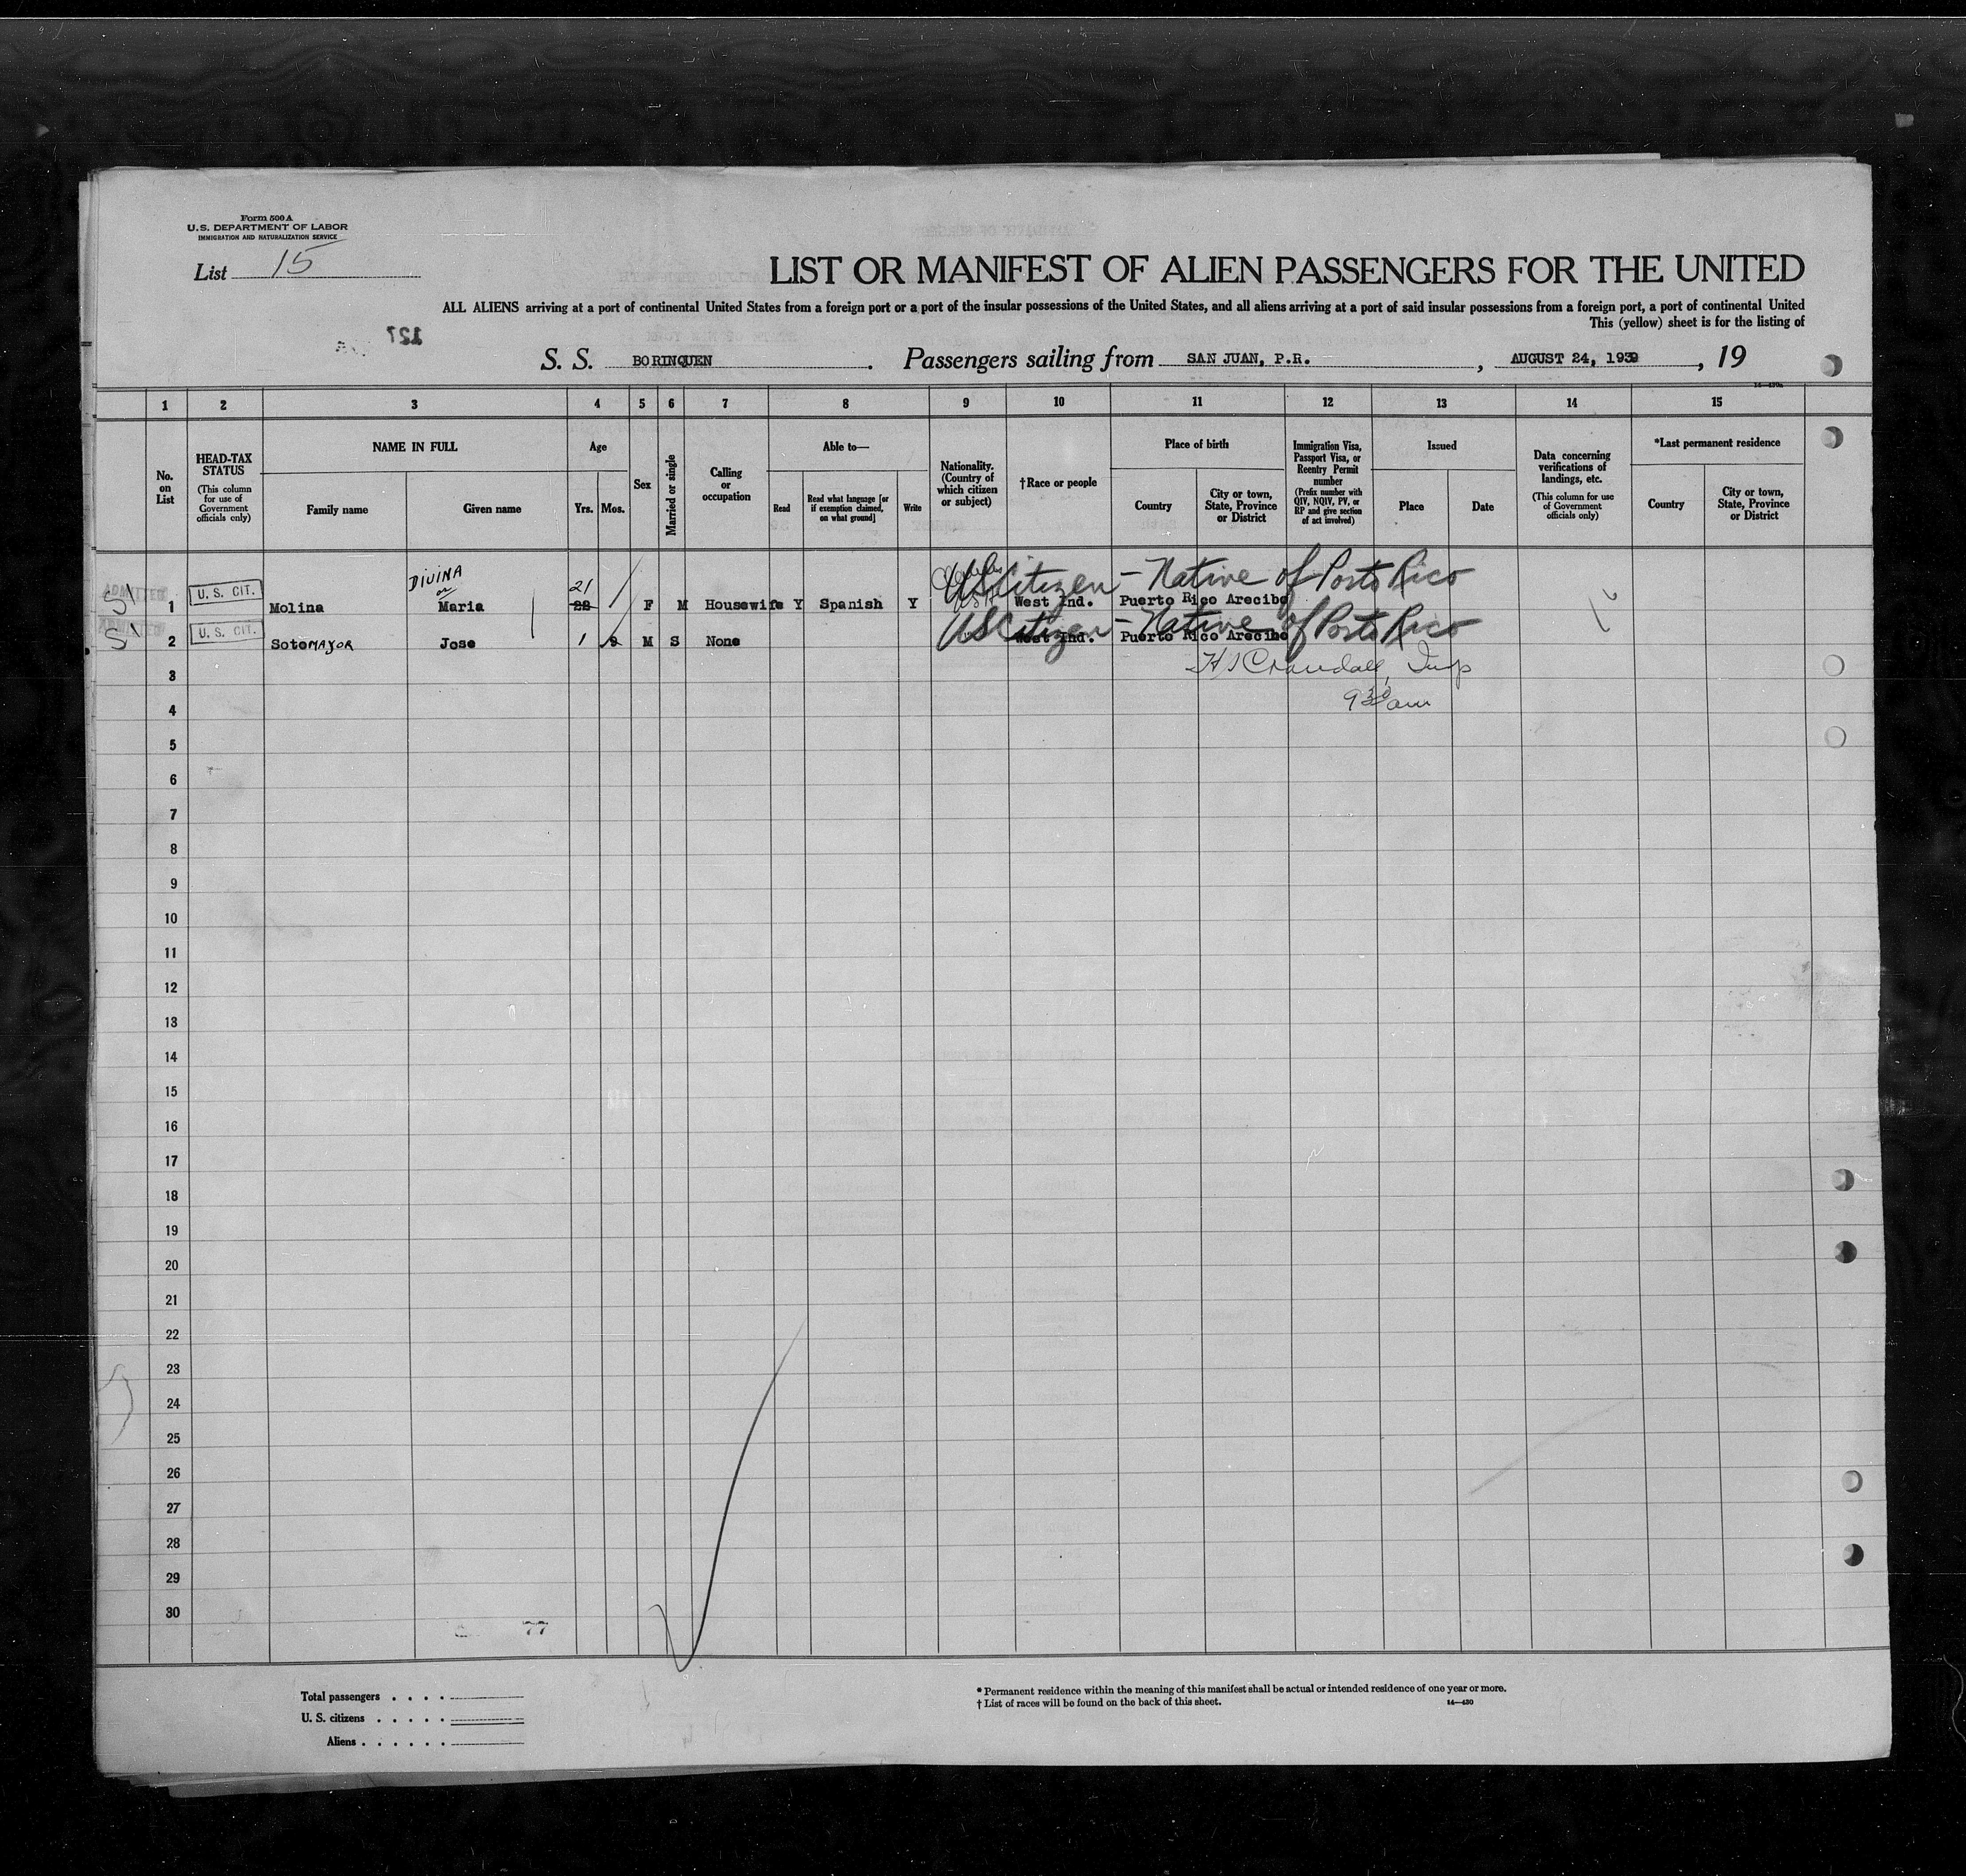 Form 500 A
U. S. DEPARTMENT OF LABOR
IMMIGRATION AND NATURALIZATION SERVICE
List 15
LIST OR MANIFEST OF ALIEN PASSENGERS FOR THE UNITED
ALL ALIENS arriving at a port of continental United States from a foreign port or a port of the insular possessions of the United States, and all aliens arriving at a port of said insular possessions from a foreign port, a port of continental United
This (yellow) sheet is for the listing of
127
S. S. BORINQUEN . Passengers sailing from SAN JUAN, P.R. , AUGUST 24, 1939 , 19
14—430a
1 2 3 4 5 6 7 8 9 10 11 12 13 14 15
No. on List
HEAD-TAX STATUS
(This column for use of Government officials only)
NAME IN FULL
Family name Given name
Age
Yrs. Mos.
Sex
Married or single
Calling or occupation
Able to—
Read Read what language [or if exemption claimed, on what ground] Write
Nationality. (Country of which citizen or subject)
†Race or people
Place of birth
Country City or town, State, Province or District
Immigration Visa, Passport Visa, or Reentry Permit number
(Prefix number with QIV, NQIV, PV, or RP and give section of act involved)
Issued
Place Date
Data concerning verifications of landings, etc.
(This column for use of Government officials only)
*Last permanent residence
Country City or town, State, Province or District
DIVINA or 21 US Citizen - Native of Porto Rico
ADMITTED 1 U. S. CIT. Molina Maria 22 F M Housewife Y Spanish Y West Ind. Puerto Rico Arecibo
US Citizen - Native of Porto Rico
ADMITTED 2 U. S. CIT. SotoMAYOR Jose 1 9 M S None West Ind. Puerto Rico Arecibo
3 H J Crandall, Insp
4 9 30 am
5
6
7
8
9
10
11
12
13
14
15
16
17
18
19
20
21
22
23
24
25
26
27
28
29
30
77
Total passengers . . . .
U. S. citizens . . . . .
Aliens . . . . . .
* Permanent residence within the meaning of this manifest shall be actual or intended residence of one year or more.
† List of races will be found on the back of this sheet. 14—430